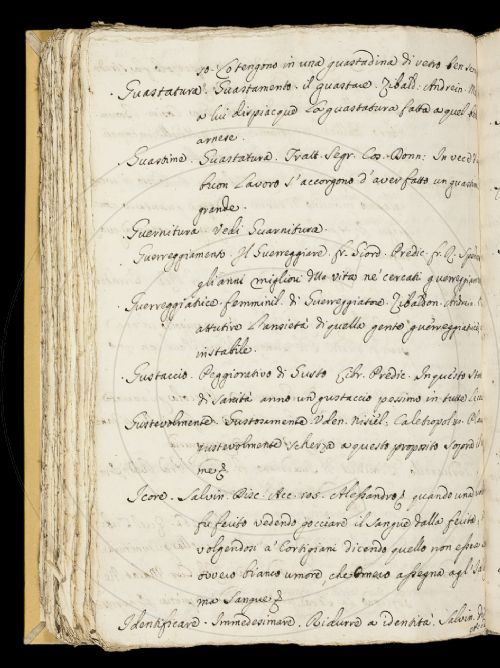 so. Lo tengono in una guastadina di vetro ben
Guastatura. Guastamento. il guastare. Zibald. Andrein.
a lui dispiacque La guastatura fatta a quel
arnese.
Guastime. Guastatura. Tratt. Segr. Cos. Donn: In vece d'
buon Lavoro s'accorgono d'aver fatto un
grande.
Guernitura. Vedi Guarnitura.
Guerreggiamento. Il Guerreggiare. fr. Giord. Predic. fr. R.
gli anni migliori della vita ne' cercati
Guerreggiatrice. femminil. di Guerreggiatore. Zibaldon. Andrein.
attutire L'ansietà di quella gente guerreggiatrice
instabile.
Gustaccio. Peggiorativo di Gusto. Libr. Predic. In questo
di sanità anno un gustaccio pessimo in tutte
Gustevolmente. Gustosamente. Uden. Nisiel.
gustevolmente scherza a questo proposito
me
Icore. Salvin. Disc. Acc. 105. Alessandro, quando una
fu ferito vedendo gocciare il sangue dalla ferita,
volgendosi a' Cortigiani dicendo quello non
ovvero bianco umore, che Omero assegna agli
ma sangue
Identificare. Immedesimare. Ridurre a identità. Salvin.